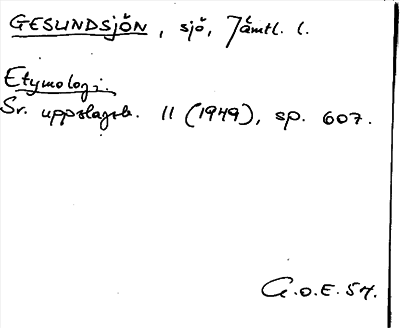 GESUNDSJÖN, sjö, Jämtl. l.
Etymologi.
Sv. uppslagsb. 11 (1949), sp. 607.
G.O.E. 57.